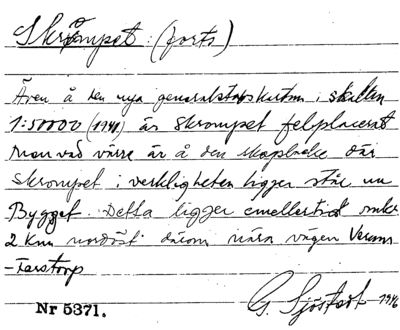 Skrömpet: (forts)
Även å den nya generalstabskartan i skalan
1:50000 (1941) är Skrompet felplacerat
men vad värre är å den skogbacke där
Skrompet i verkligheten ligger står nu
Bygget. Detta ligger emellertid omkr
2 km nordöst därom nära vägen Verum
-Farstorp
G. Sjöstedt 1946
Nr 5371.